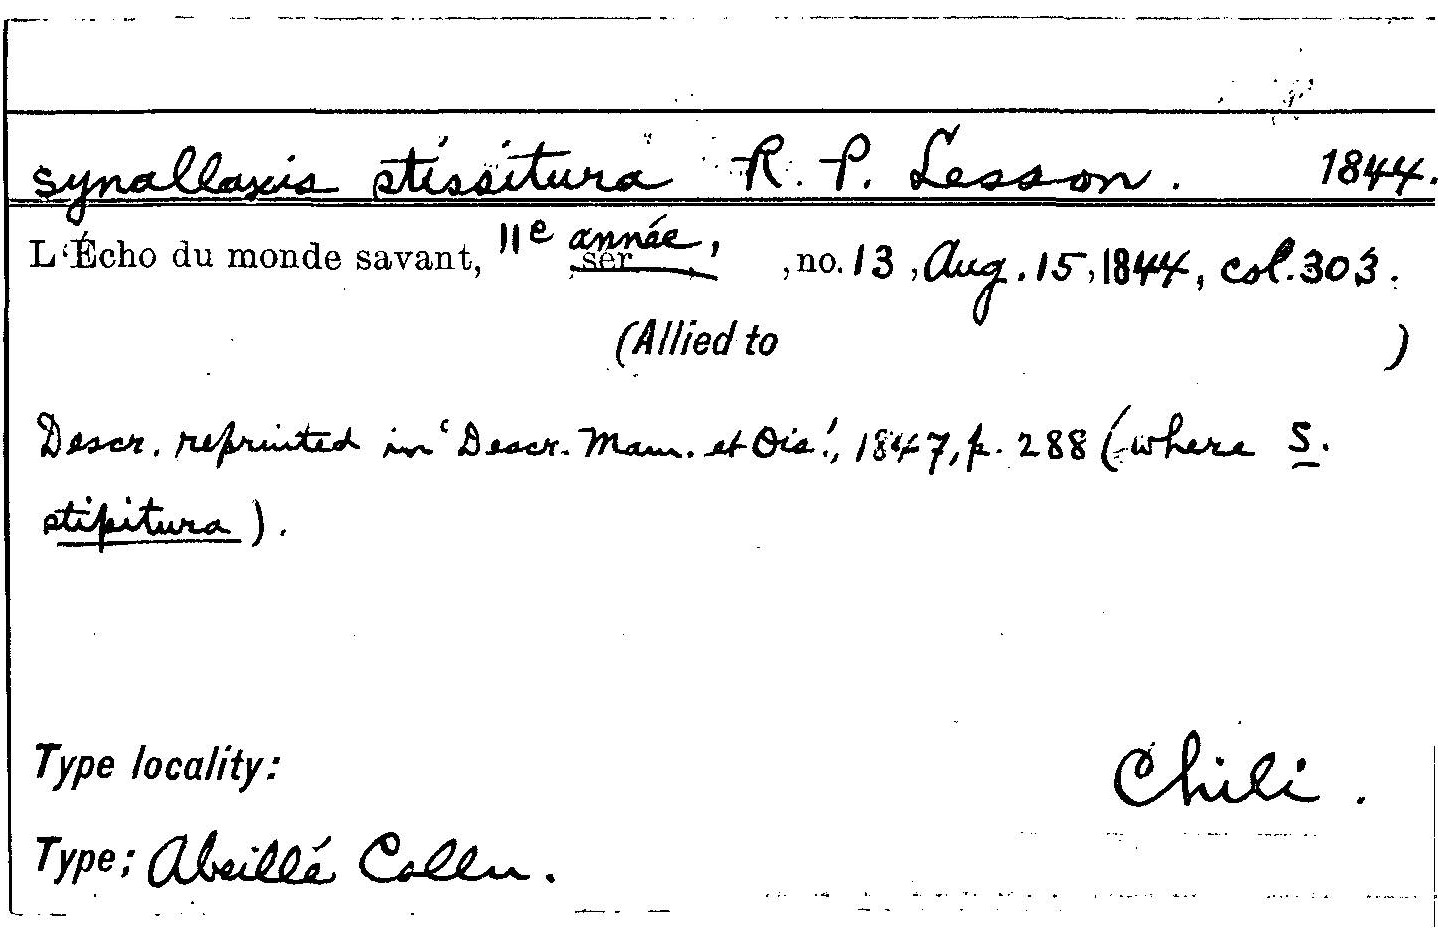 synallaxis stissitura R. P. Lesson. 1844.
L'Écho du monde savant, 11e année, ,ser , ,no. 13 , Aug. 15, 1844, col. 303.
(Allied to )
Descr. reprinted in 'Descr. Mam. et Ois.', 1847, p. 288 (where S.
stipitura).
Type locality: Chili.
Type: Abeillé Colln.